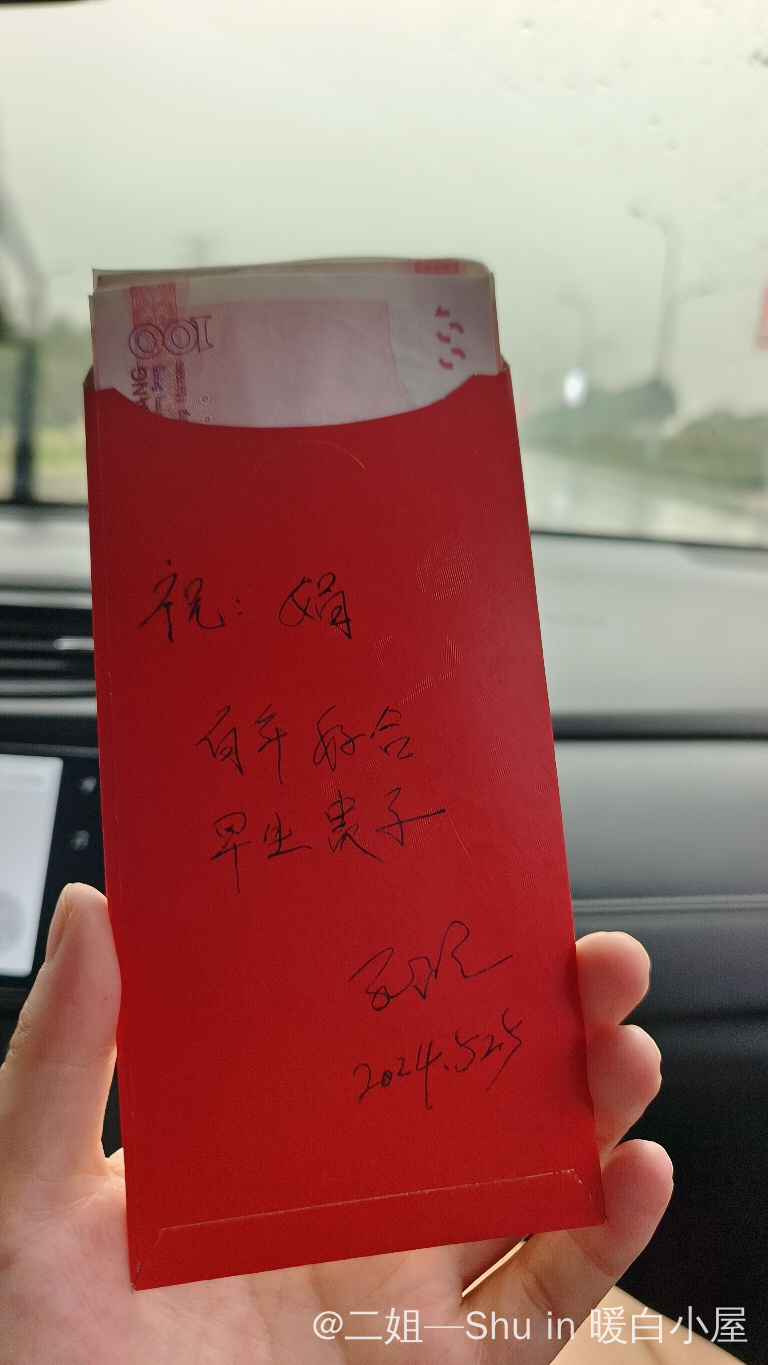 100
祝：娟
百年好合
早生贵子
2024.5.25
@二姐—Shu in 暖白小屋